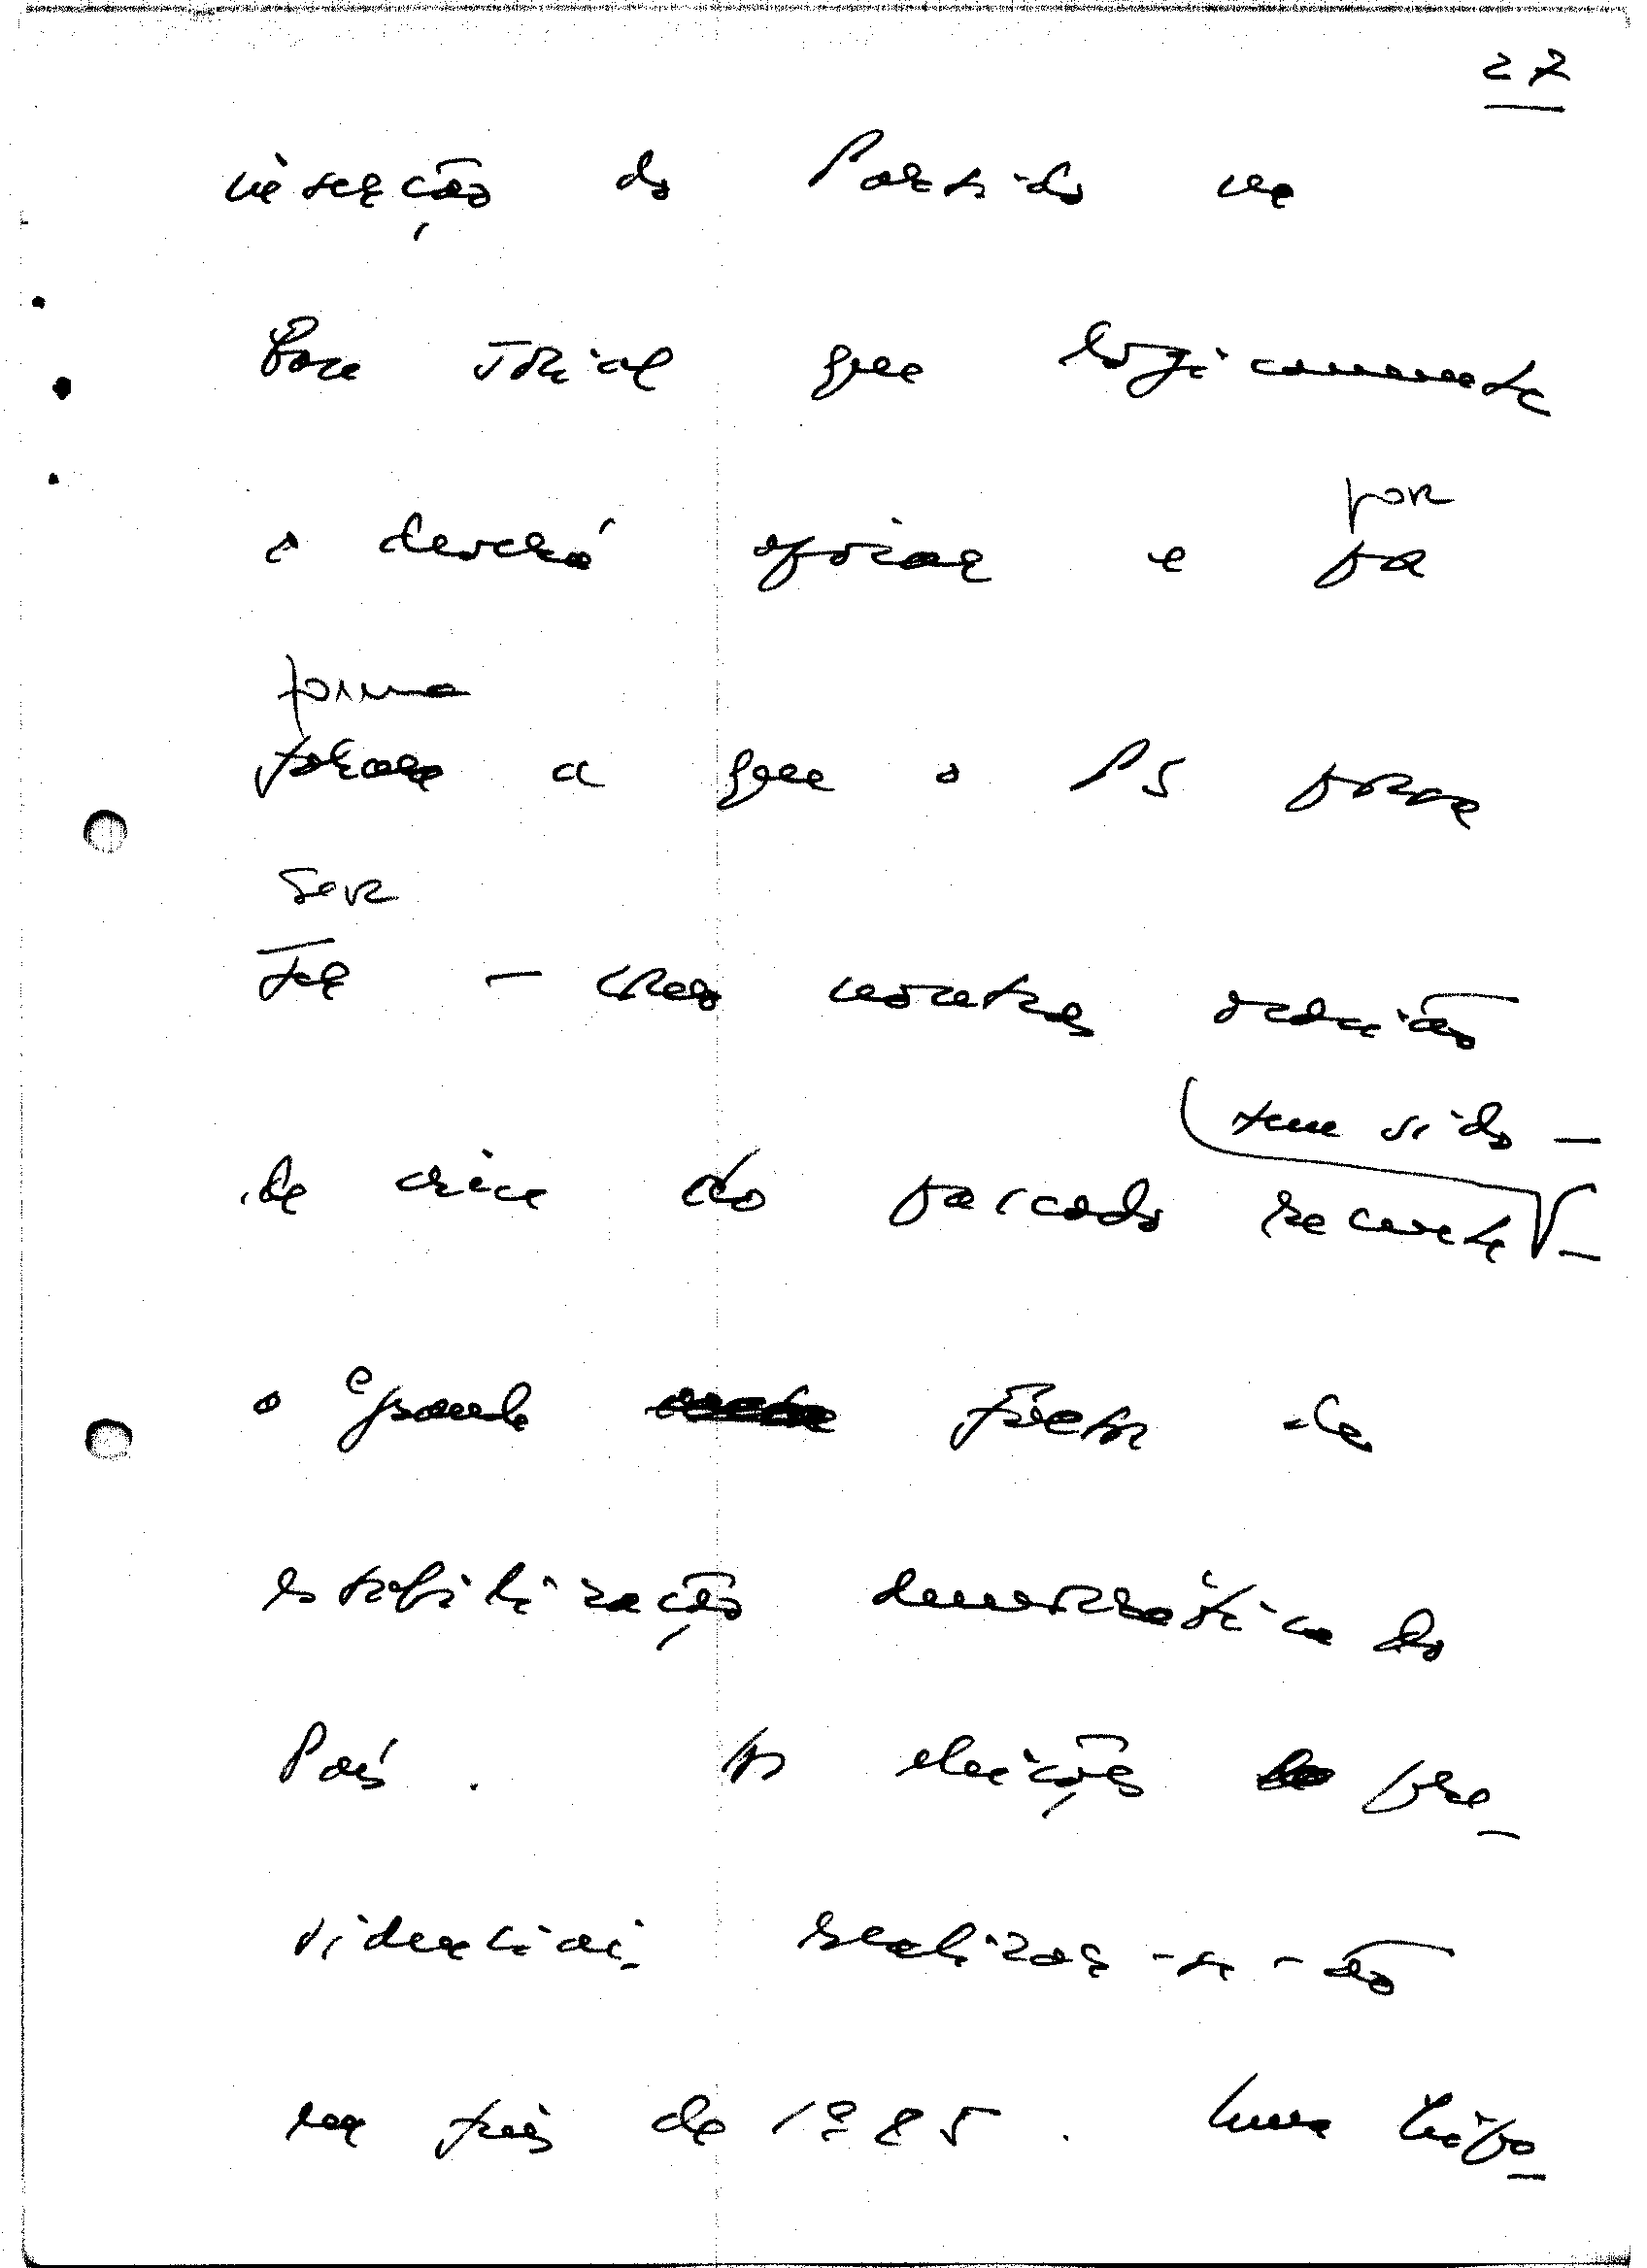 27
inserção do Partido na
base social que logicamente
o deverá apoiar e por
por
forma
forma a que o PS possa
ser
ser – como noutras ocasiões
tem sido –
de crise do passado recente –
o grande factor de
estabilização democrática do
País. As eleições pre_
sidenciais realizar-se-ão
no fim de 1985. Numa hipó_